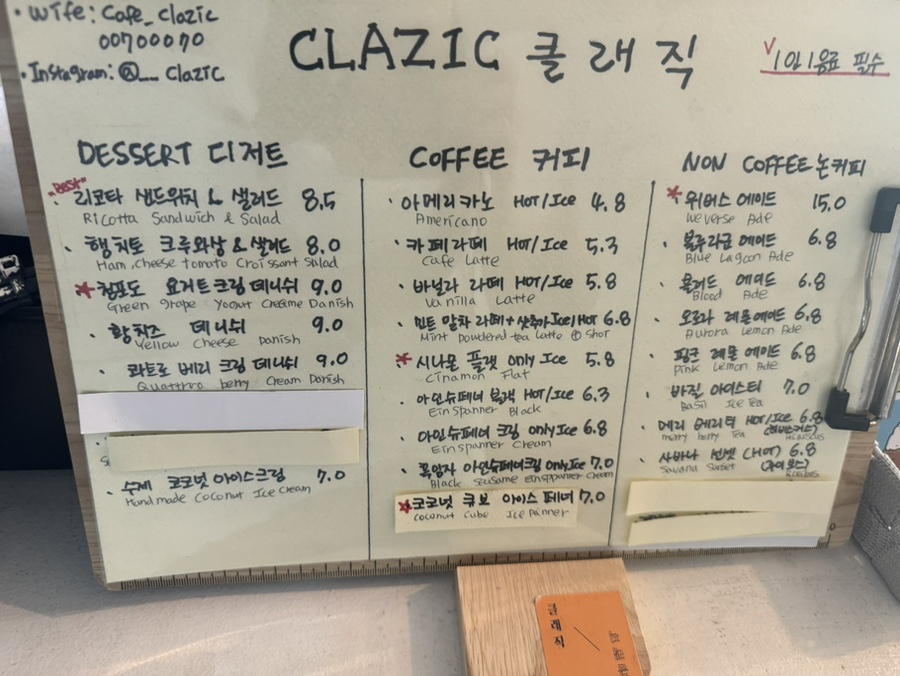 • Wife: Cafe_clazic
00700070
• Instagram: @__clazic
CLAZIC 클래직
√1인 1음료 필수
DESSERT 디저트
"BEST"
• 리코타 샌드위치 & 샐러드 8.5
Ricotta Sandwich & Salad
• 햄치토 크루와상 & 샐러드 8.0
Ham, cheese tomato Croissant Salad
★ 청포도 요거트크림 데니쉬 9.0
Green grape Yogurt Creame Danish
• 황치즈 데니쉬 9.0
Yellow Cheese Danish
• 콰트로 베리 크림 데니쉬 9.0
Quattro berry Cream Danish
• 수제 코코넛 아이스크림 7.0
Handmade Coconut Ice Cream
COFFEE 커피
• 아메리카노 Hot/Ice 4.8
Americano
• 카페라떼 Hot/Ice 5.3
Cafe Latte
• 바닐라 라떼 Hot/Ice 5.8
Vanilla Latte
• 민트 말차 라떼+샷추가 Ice/Hot 6.8
Mint powdered tea latte @ shot
★ 시나몬 플랫 only Ice 5.8
Cinamon Flat
• 아인슈페너 블랙 Hot/Ice 6.3
Einspanner Black
• 아인슈페너 크림 only Ice 6.8
Einspanner Cream
• 흑임자 아인슈페너크림 only Ice 7.0
Black Seasame einsppanner Cream
★ 코코넛 큐브 아이스 페너 7.0
Coconut Cube Ice panner
NON COFFEE 논커피
★ 위버스 에이드 15.0
Weverse Ade
• 블루라군 에이드 6.8
Blue Lagoon Ade
• 블러드 에이드 6.8
Blood Ade
• 오로라 레몬에이드 6.8
Aurora Lemon Ade
• 핑크 레몬 에이드 6.8
Pink Lemon Ade
• 바질 아이스티 7.0
Basil Ice Tea
• 메리 베리티 Hot/Ice 6.8
merry berry Tea (히비스커스)
Hibiscus
• 사바나 선셋 (Hot) 6.8
Savana Sunset (루이보스)
Rooibos
클래직